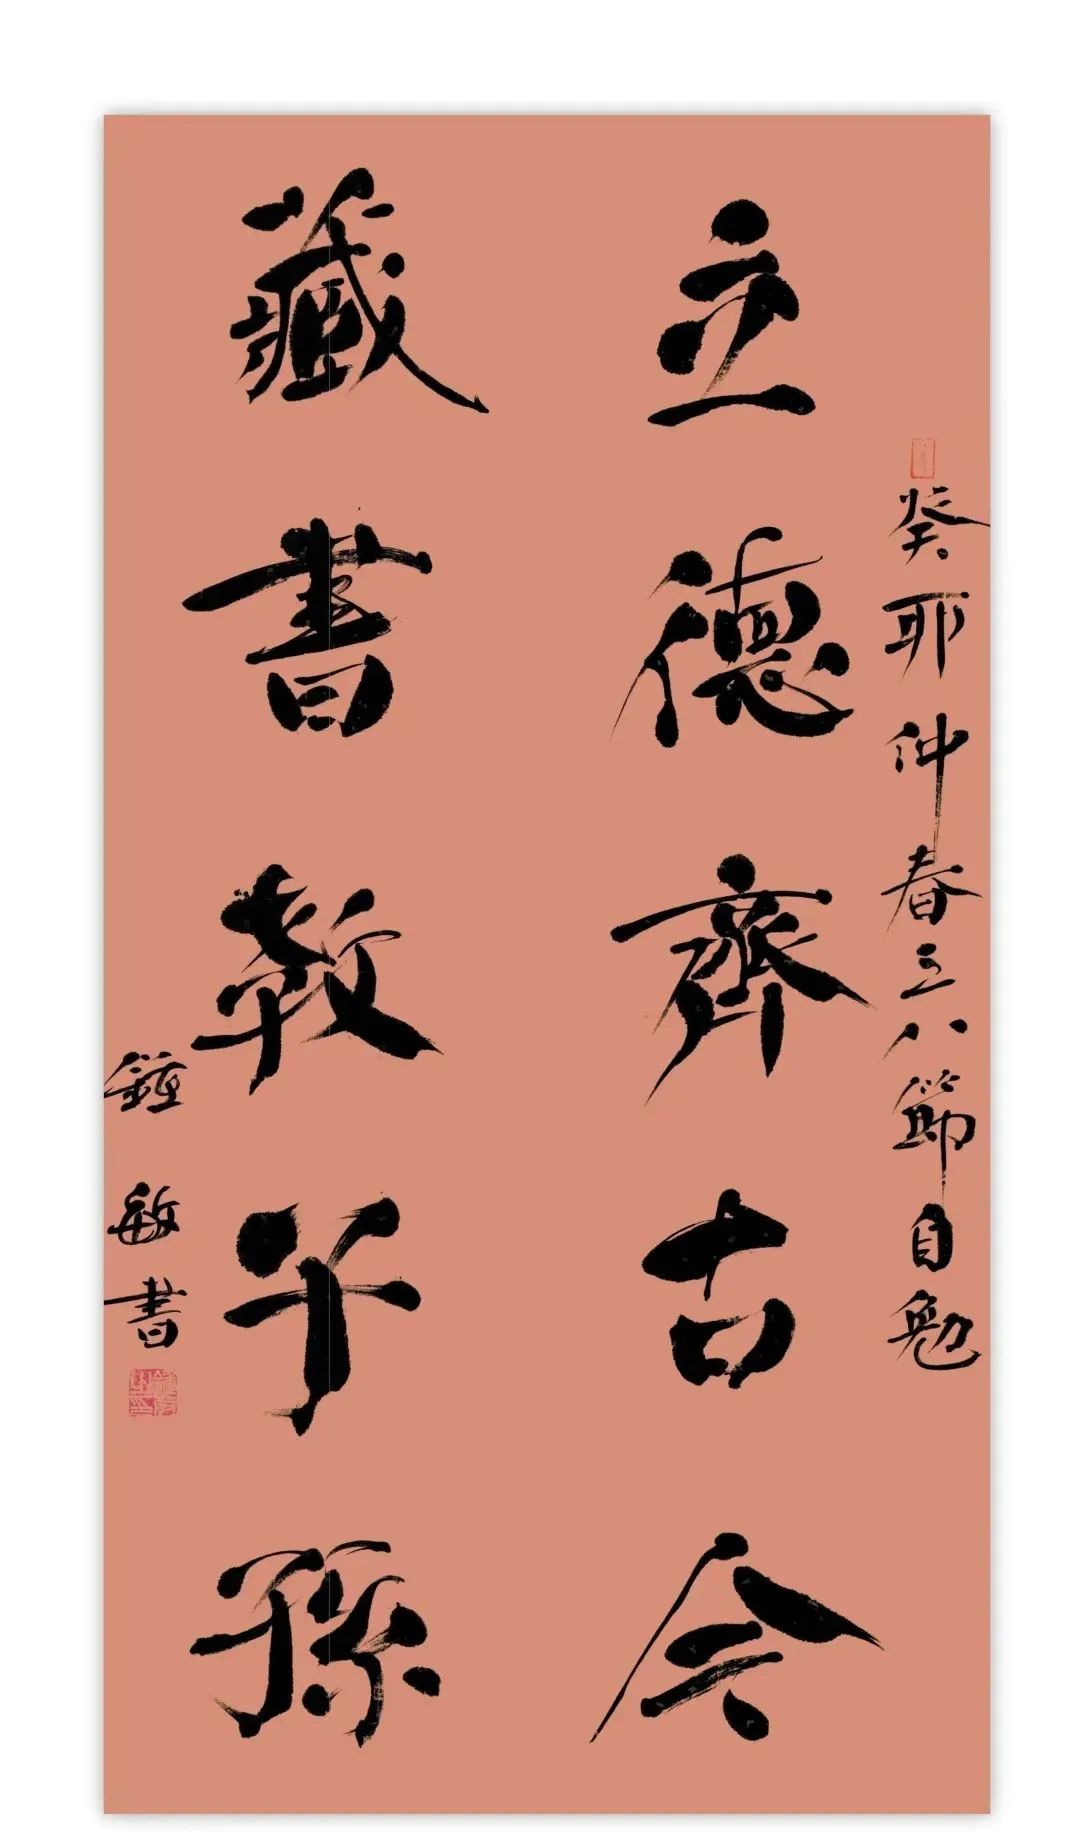 癸卯仲春三八節自勉
立德齊古今
藏書教子孫
鍾敏書